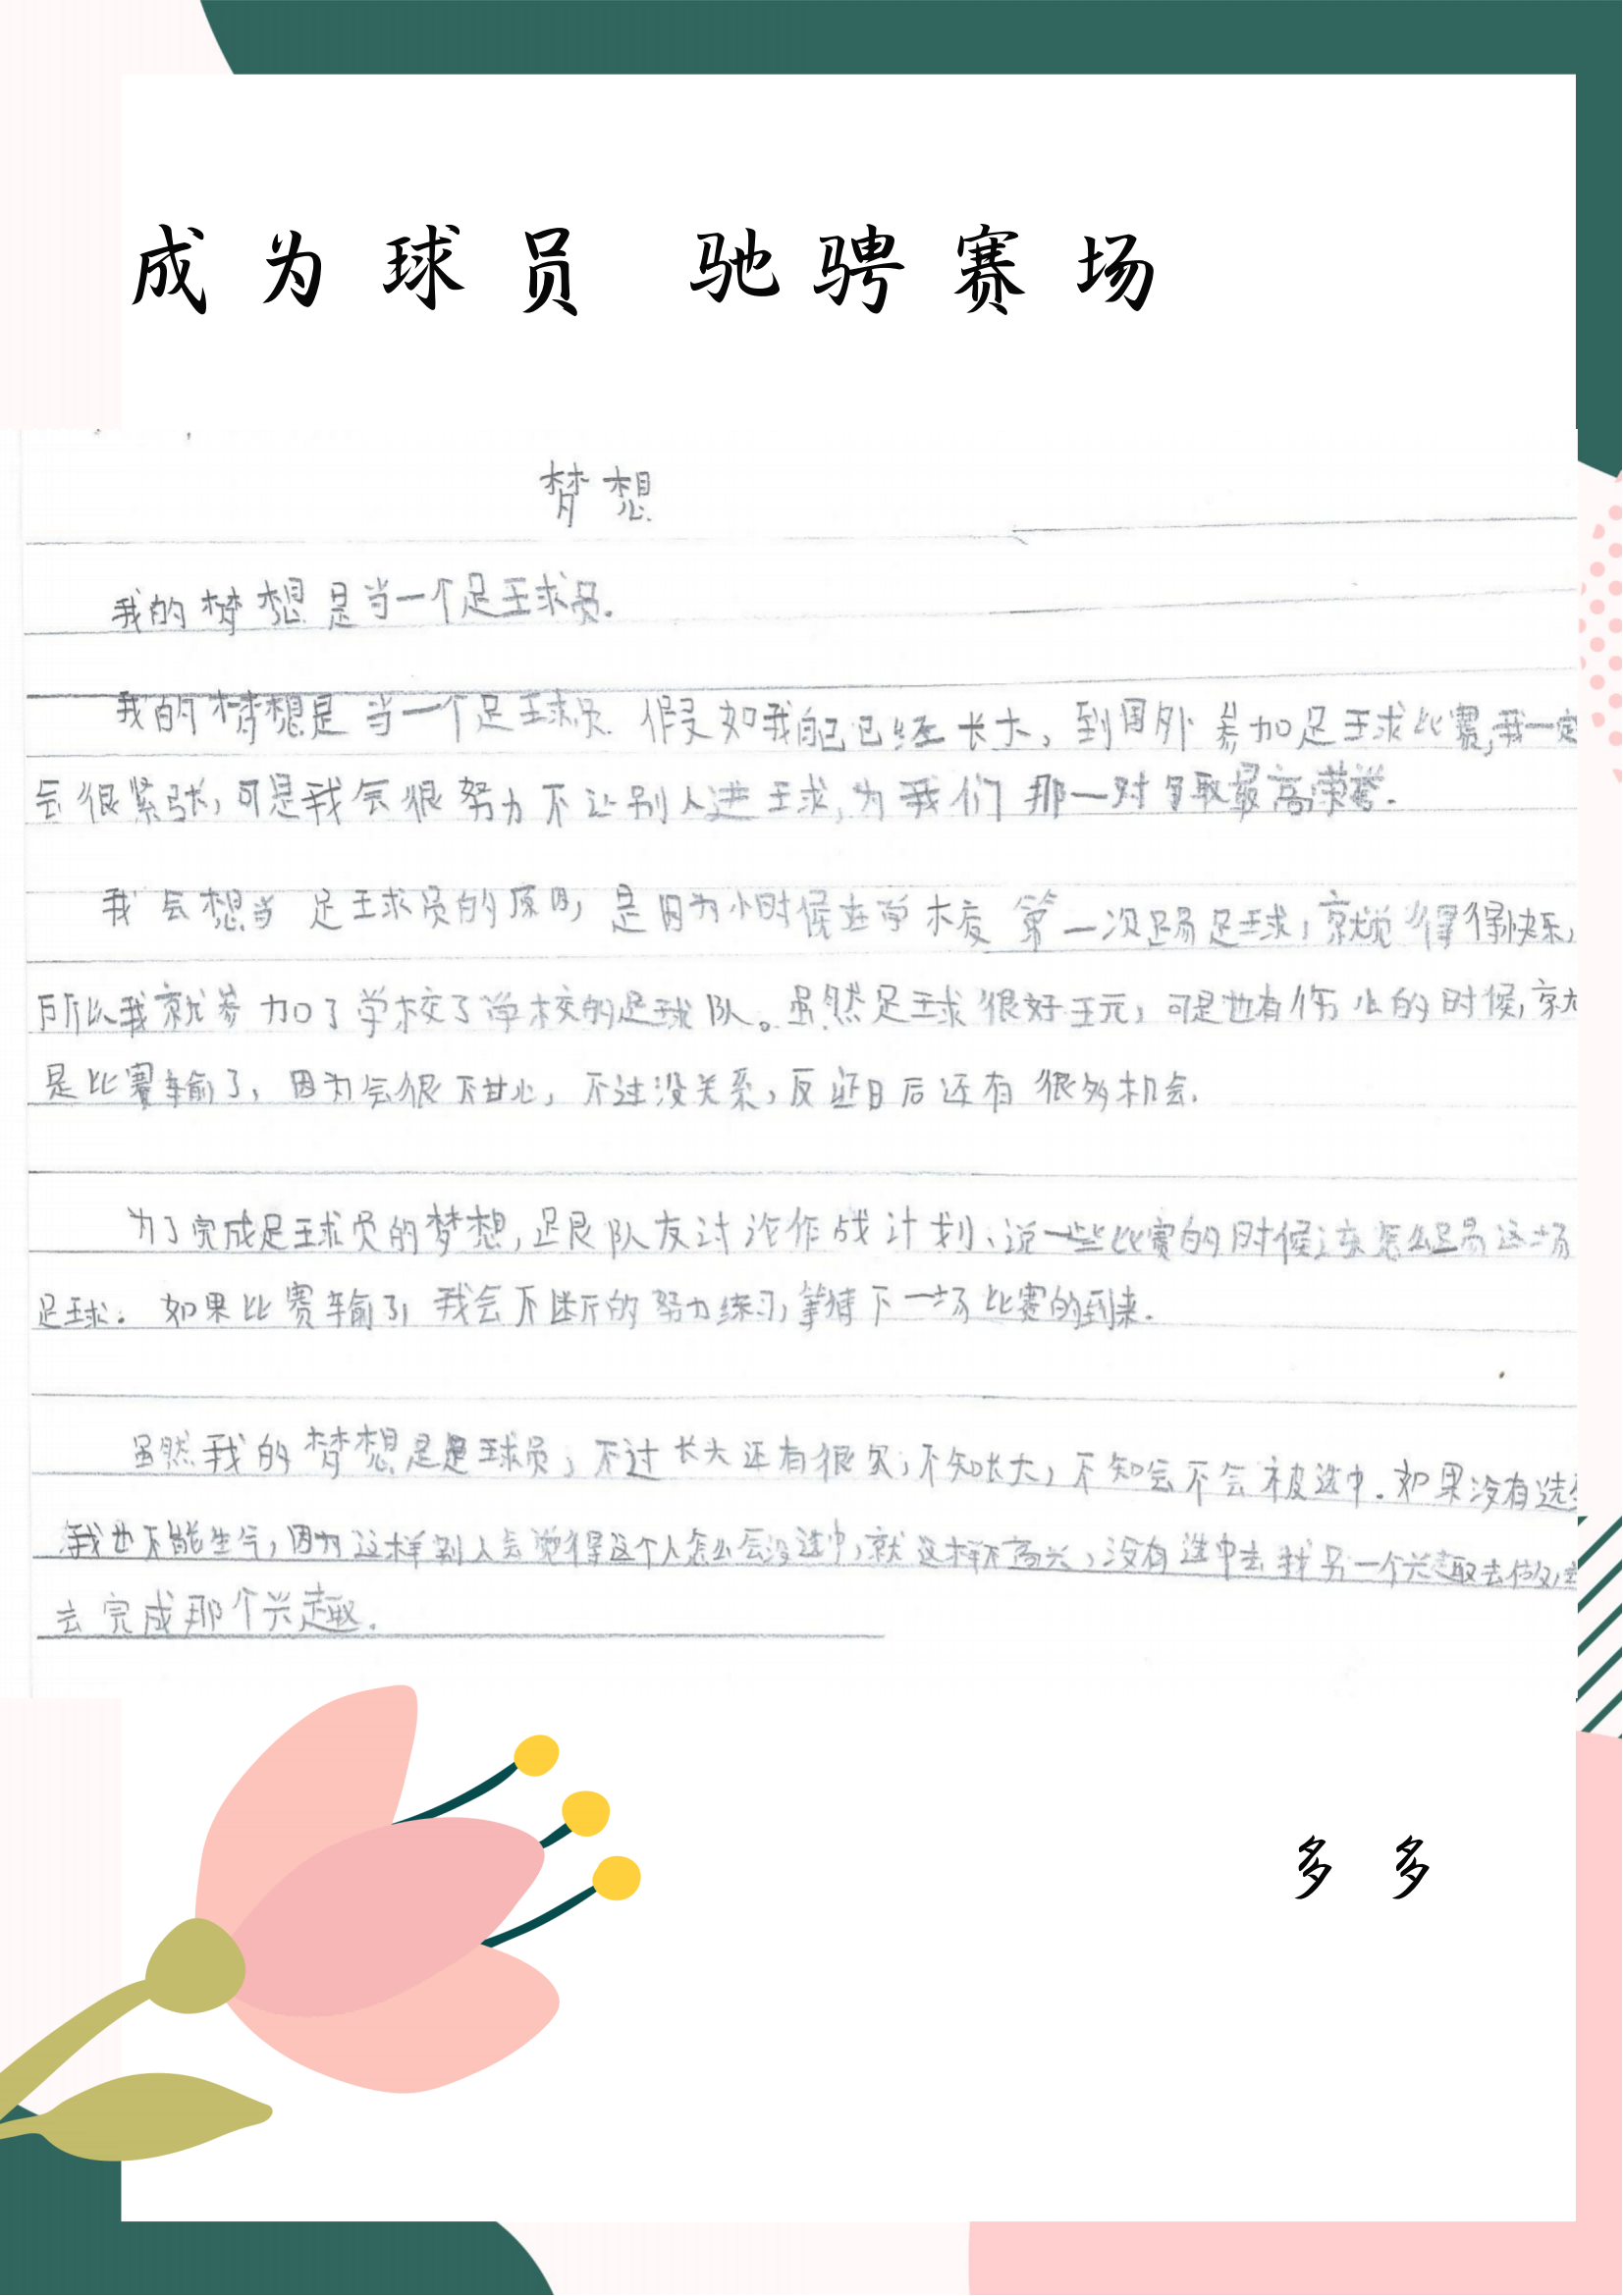 成为球员 驰骋赛场
梦想
我的梦想是当一个足球员.
我的梦想是当一个足球员.假如我自己已经长大,到国外参加足球比赛,我一定
会很紧张,可是我会很努力不让别人进球,为我们那一对夺取最高荣誉.
我会想当足球员的原因,是因为小时候在学校第一次踢足球,就觉得得快乐,
所以我就参加了学校了学校的足球队。虽然足球很好玩,可是也有伤心的时候,就
是比赛输了,因为会很不甘心,不过没关系,反正日后还有很多机会.
为了完成足球员的梦想,跟队友讨论作战计划、说一些比赛的时候该怎么踢这场
足球.如果比赛输了,我会不断的努力练习,等待下一场比赛的到来.
虽然我的梦想是足球员,不过长大还有很久,不知长大,不知会不会被选中.如果没有选
我也不能生气,因为这样别人会觉得这个人怎么会没选中,就这样不高兴,没有选中去找另一个兴趣去做,
去完成那个兴趣.
多多